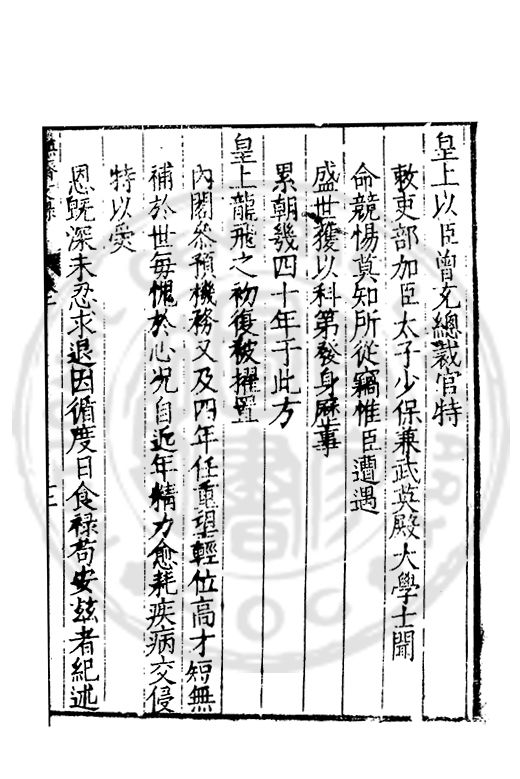 皇上以臣曾充總裁官特
敕吏部加臣太子少保兼武英殿大學士聞
命競惕莫知所從竊惟臣遭遇
盛世獲以科第發身歷事
累朝幾四十年于此方
皇上龍飛之初復被擢置
內閣叅預機務又及四年任重望輕位高才短無
補於世每愧於心况自近年精力愈耗疾病交侵
特以受
恩旣深未忍求退因循度日食祿苟安玆者紀述